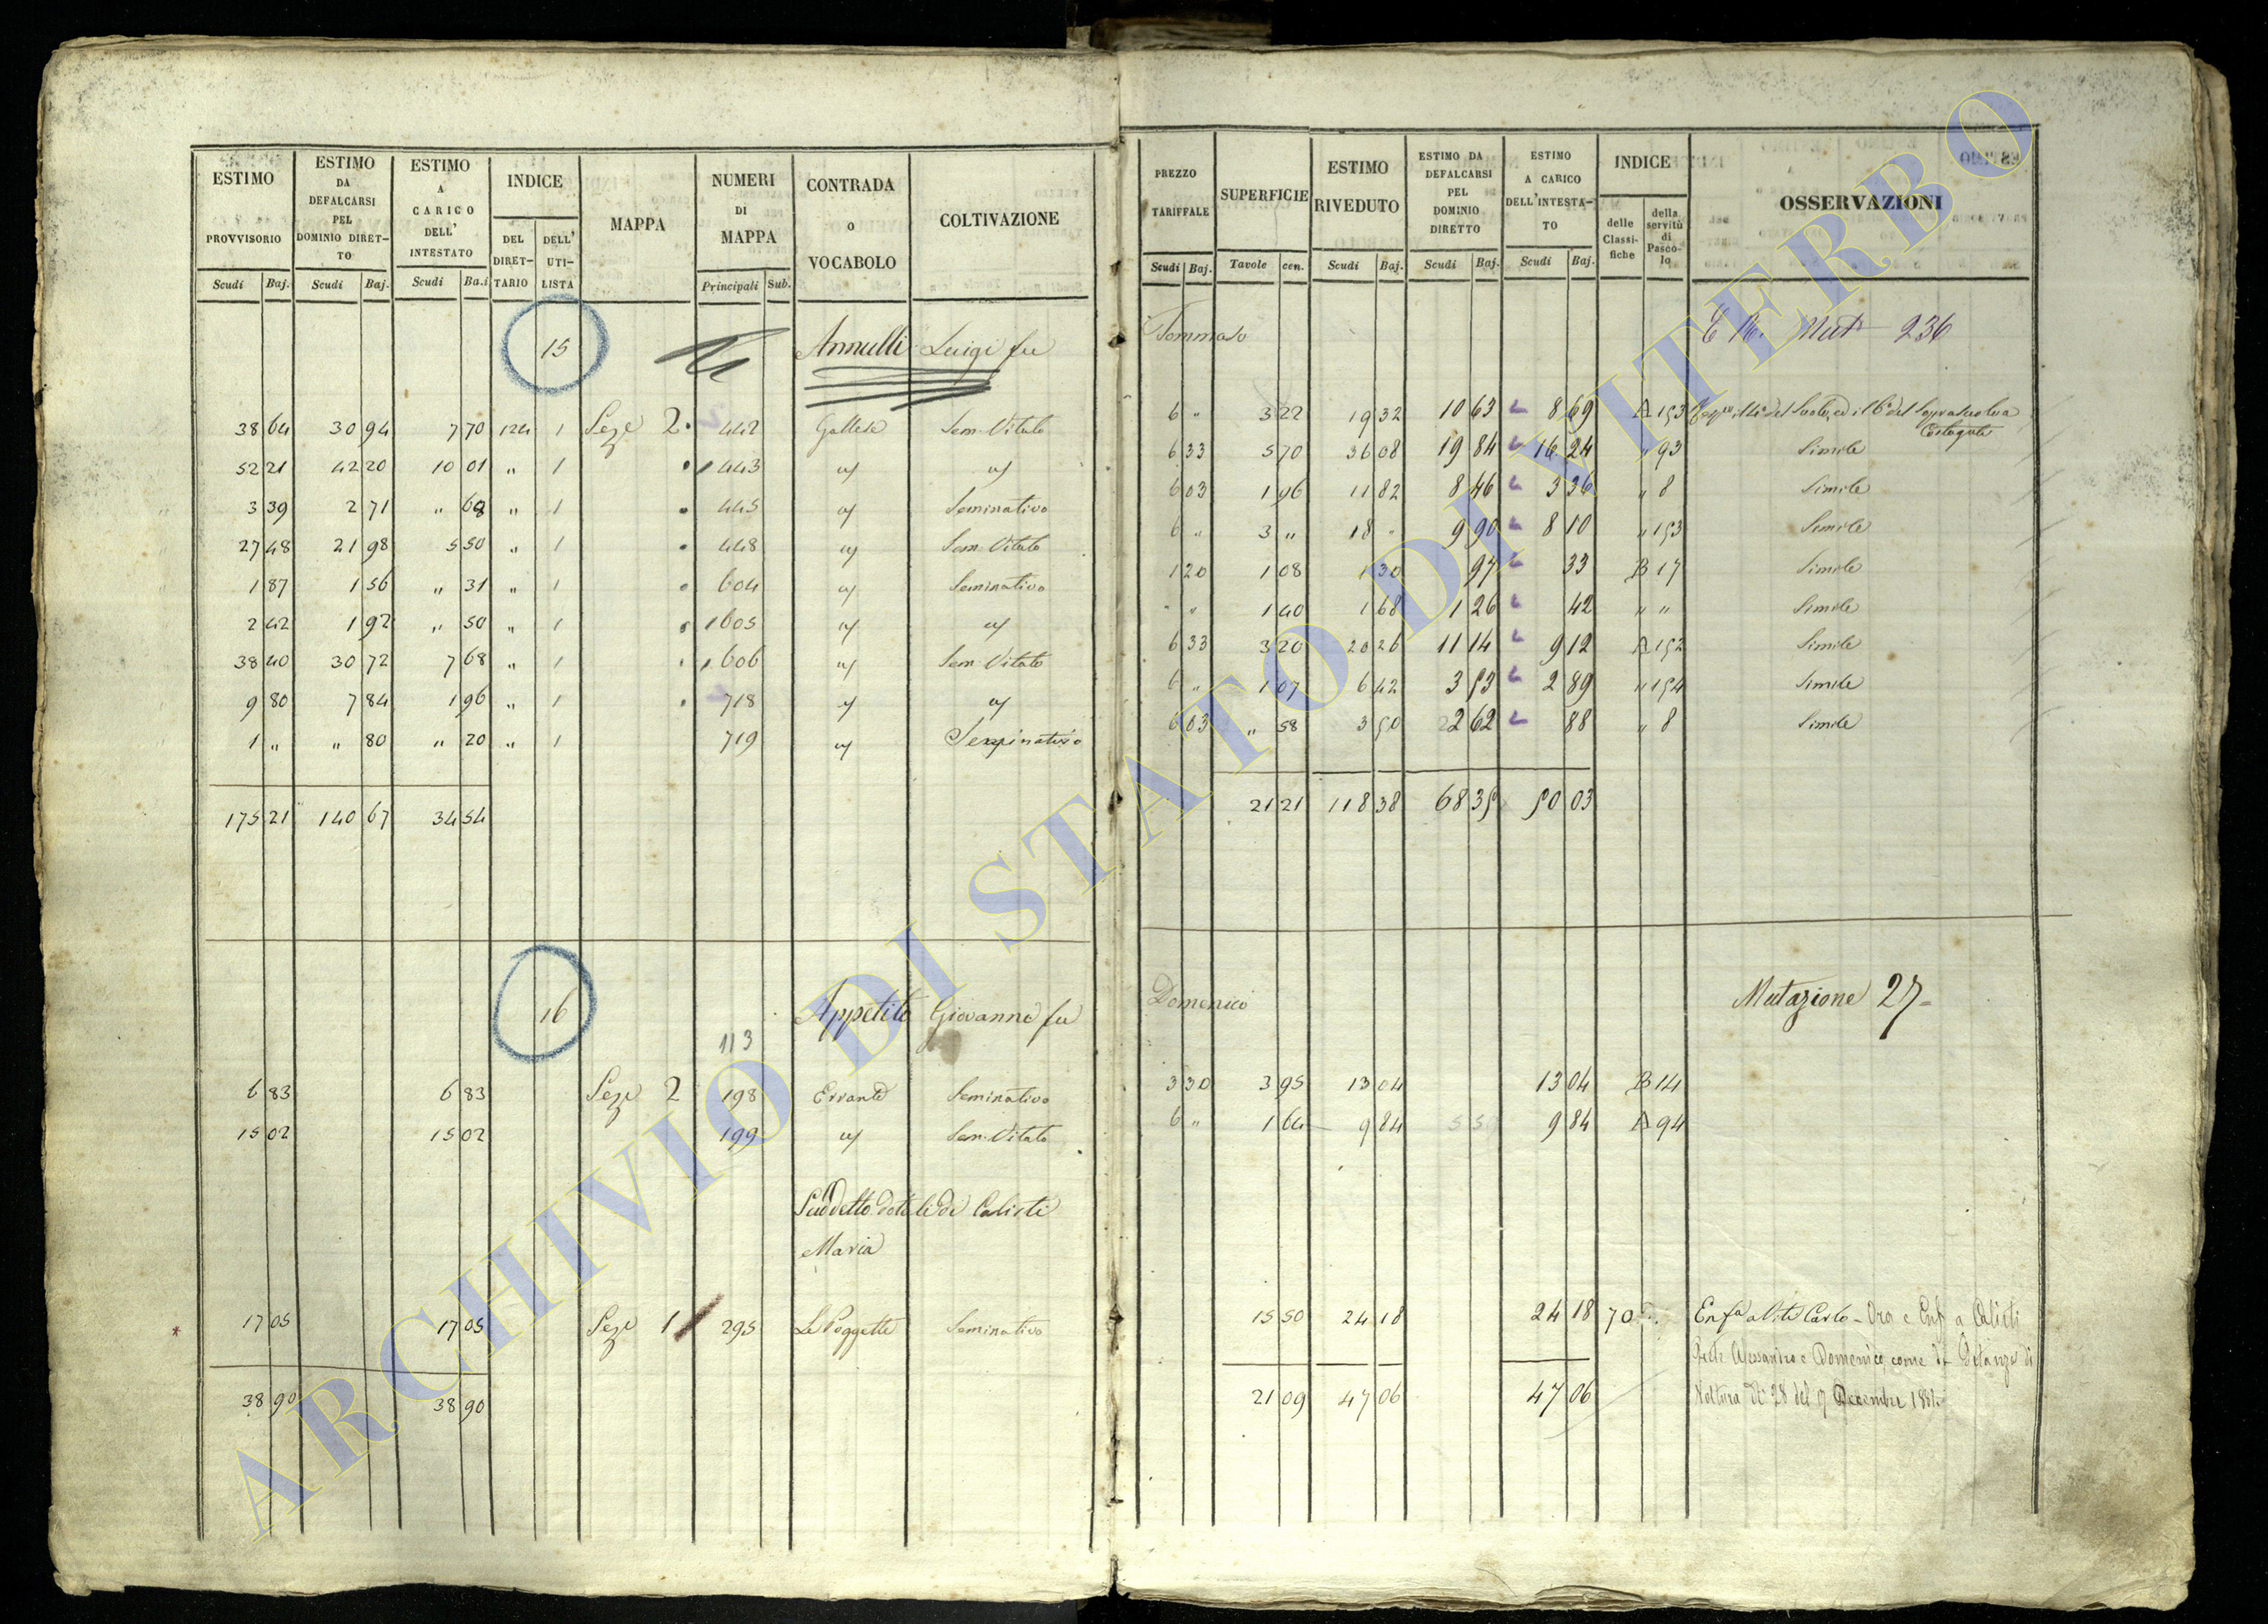 ESTIMO PROVVISORIO | ESTIMO DA DEFALCARSI PEL DOMINIO DIRETTO | ESTIMO A CARICO DELL' INTESTATO | INDICE | MAPPA | NUMERI DI MAPPA | CONTRADA O VOCABOLO | COLTIVAZIONE | PREZZO TARIFFALE | SUPERFICIE | ESTIMO RIVEDUTO | ESTIMO DA DEFALCARSI PEL DOMINIO DIRETTO | ESTIMO A CARICO DELL'INTESTATO | INDICE | OSSERVAZIONI
Scudi | Baj. | Scudi | Baj. | Scudi | Ba.i | DEL DIRETTARIO | DELL' UTILISTA | Principali | Sub. | Scudi | Baj. | Tavole | cen. | Scudi | Baj. | Scudi | Baj. | Scudi | Baj. | delle Classifiche | della servitù di Pascolo
15 Annulli Luigi fu Tommaso Mut 236
38 64 | 30 94 | 7 70 | 124 | 1 | Seze 2 | 442 | Gallese | Sem. Vitato | 6 " | 3 22 | 19 32 | 10 63 | 8 69 | A 153
52 21 | 42 20 | 10 01 | " | 1 | 443 | 6 33 | 5 70 | 36 08 | 19 84 | 16 24 | " 93 | Simile
3 39 | 2 71 | " 68 | " | 1 | 445 | Seminativo | 6 03 | 1 96 | 11 82 | 8 46 | 3 36 | " 8 | Simile
27 48 | 21 98 | 5 50 | " | 1 | 448 | Sem. Vitato | 6 " | 3 " | 18 " | 9 90 | 8 10 | " 153 | Simile
1 87 | 1 56 | " 31 | " | 1 | 604 | Seminativo | 1 20 | 1 08 | 1 30 | 97 | 33 | B 17 | Simile
2 42 | 1 92 | " 50 | " | 1 | 605 | " " | 1 40 | 1 68 | 1 26 | 42 | " " | Simile
38 40 | 30 72 | 7 68 | " | 1 | 606 | Sem. Vitato | 6 33 | 3 20 | 20 26 | 11 14 | 9 12 | A 152 | Simile
9 80 | 7 84 | 1 96 | " | 1 | 718 | 6 " | 1 07 | 6 42 | 3 53 | 2 89 | " 154 | Simile
1 " | " 80 | " 20 | " | 1 | 719 | Seminativo | 6 03 | " 58 | 3 50 | 2 62 | 88 | " 8 | Simile
175 21 | 140 67 | 34 54 | 21 21 | 118 38 | 68 35 | 50 03
16 Appetito Giovanni fu Domenico Mutazione 27
113
6 83 | 6 83 | Seze 2 | 198 | Errante | Seminativo | 3 30 | 3 95 | 13 04 | 13 04 | B 14
15 02 | 15 02 | 199 | Sem. Vitato | 6 " | 1 64 | 9 84 | 9 84 | A 94
Suddetto dotali di Calisti
Maria
17 05 | 17 05 | Seze 1 | 295 | Le Poggette | Seminativo | 15 50 | 24 18 | 24 18 | 70 | Enf.a a Vito Carlo - Ora e Enf. a Calisti
Alessandro e Domenico come da Istanza di
Voltura N. 28 del 9 Decembre 1881
38 90 | 38 90 | 21 09 | 47 06 | 47 06
ARCHIVIO DI STATO DI VITERBO